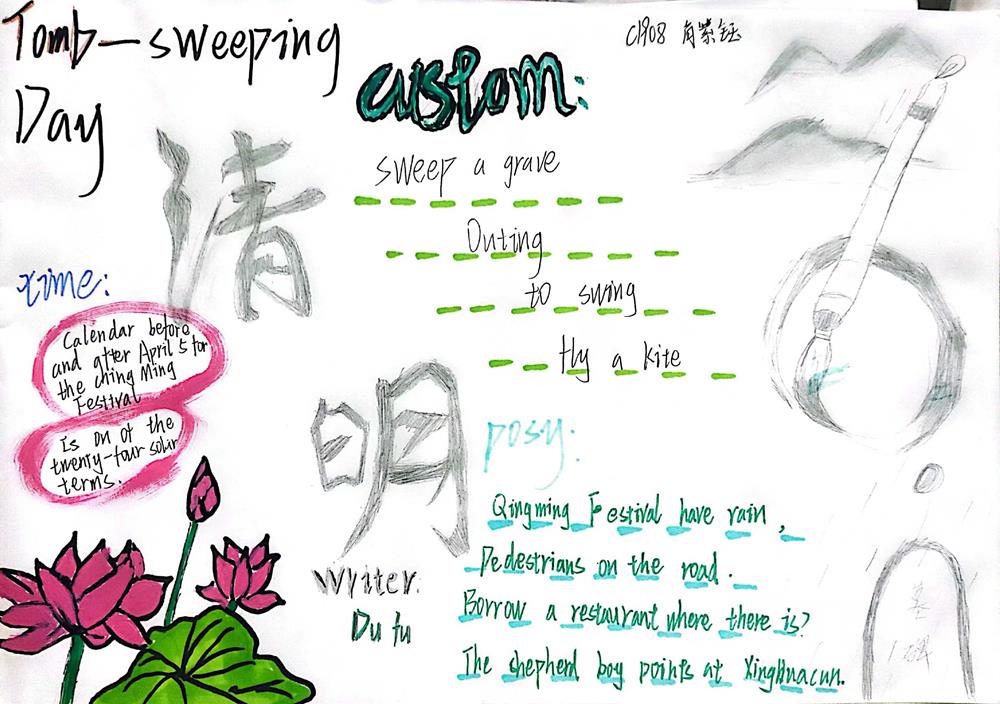 Tomb-sweeping
Day
C1908 肖紫钰
custom:
sweep a grave
Outing
to swing
fly a kite
清
明
time:
Calendar before
and after April 5 for
the ching Ming
Festival
Is on of the
twenty-four solir
terms.
posy:
Qingming Festival have rain,
Pedestrians on the road.
Borrow a restaurant where there is?
The shepherd boy points at XingHuacun.
Writer:
Du fu
墓